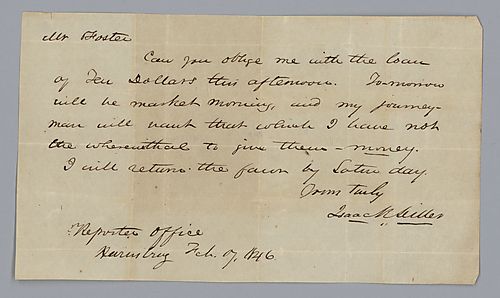 Mr Foster
Can you oblige me with the loan
of Ten Dollars this afternoon. To-morrow
will be market morning, and my journey-
man will want that which I have not
the wherewithal to give them – money.
I will return the favor by Saturday.
Yours truly
Isaac R. Diller
Reporter Office
Harrisburg Feb. 17, 1846